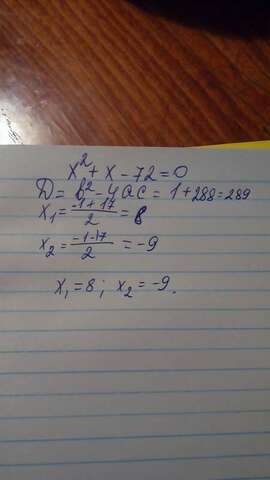 x² + x - 72 = 0
D = b² - 4ac = 1 + 288 = 289
x₁ = (-1 + 17)/2 = 8
x₂ = (-1 - 17)/2 = -9
x₁ = 8; x₂ = -9.